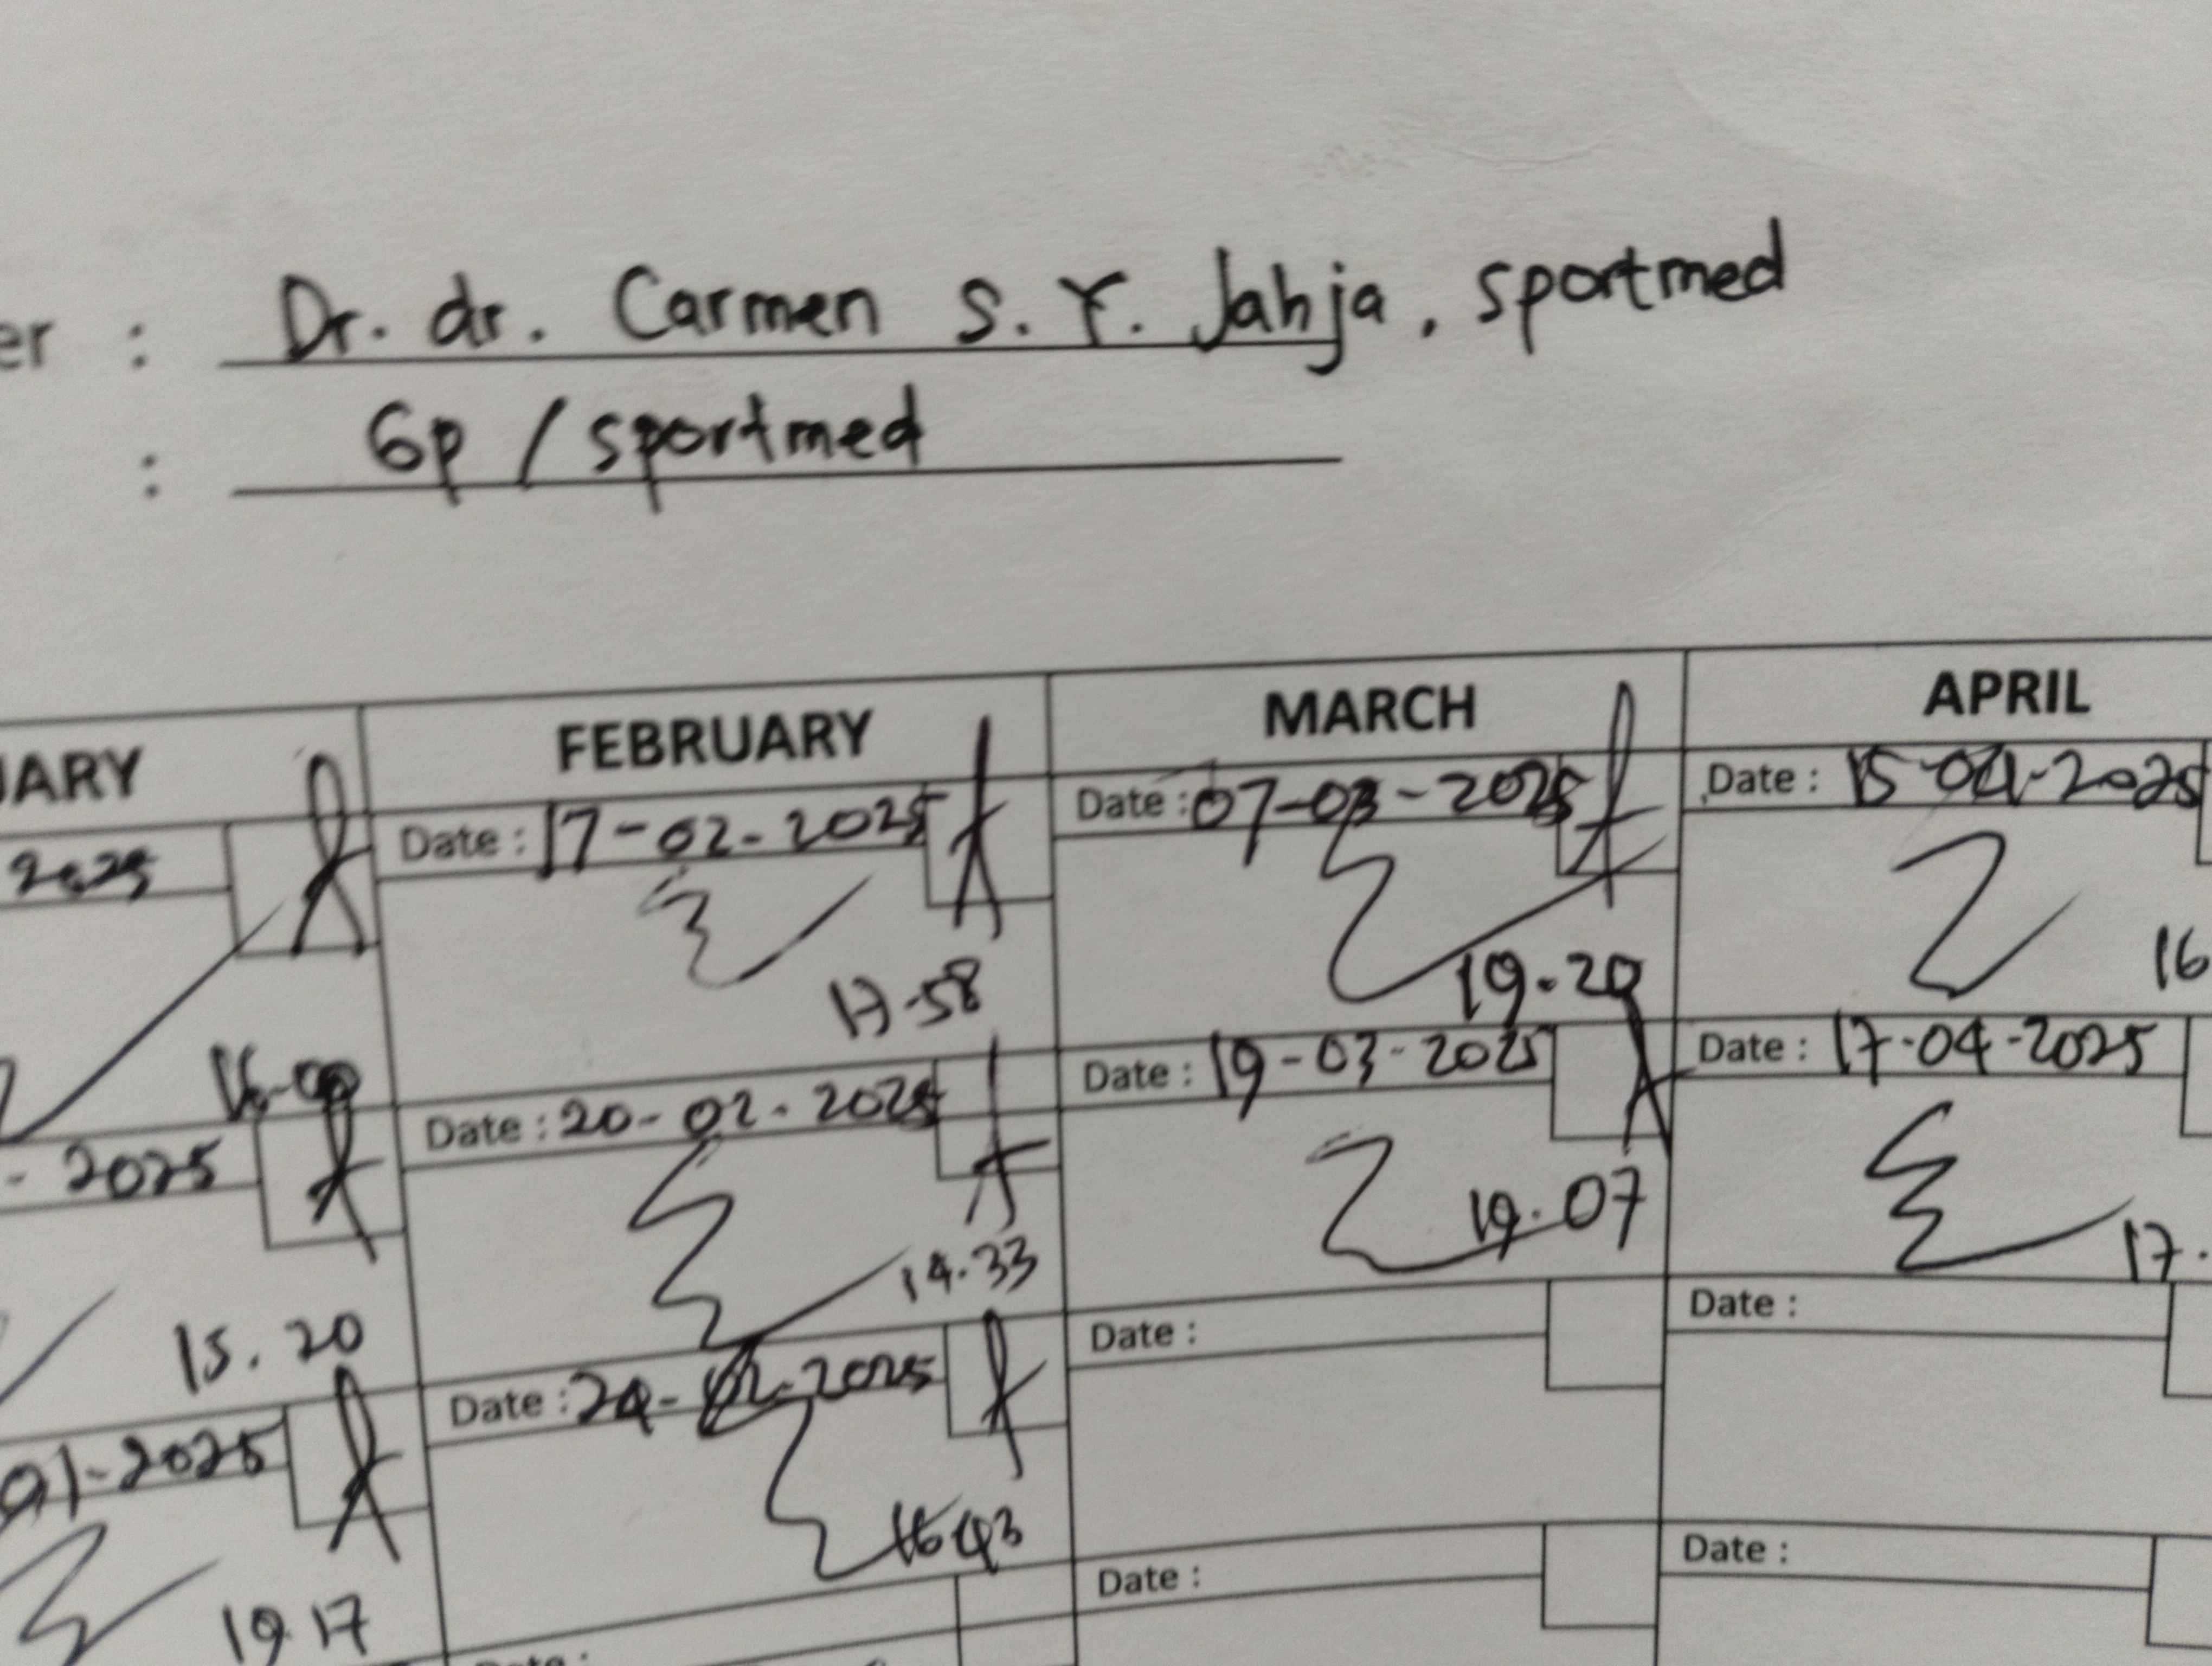 er : Dr. dr. Carmen S. Y. Jahja, sportmed
: Gp / sportmed
UARY FEBRUARY MARCH APRIL
2025 Date : 17-02-2025 Date : 07-03-2025 Date : 15-04-2025
17.58 19.20 16
- 2025 Date : 20-02-2025 Date : 19-03-2025 Date : 17-04-2025
15.20 14.33 19.07 17.
01-2025 Date : 24-02-2025 Date : Date :
19 17 16 43
Date : Date : Date :